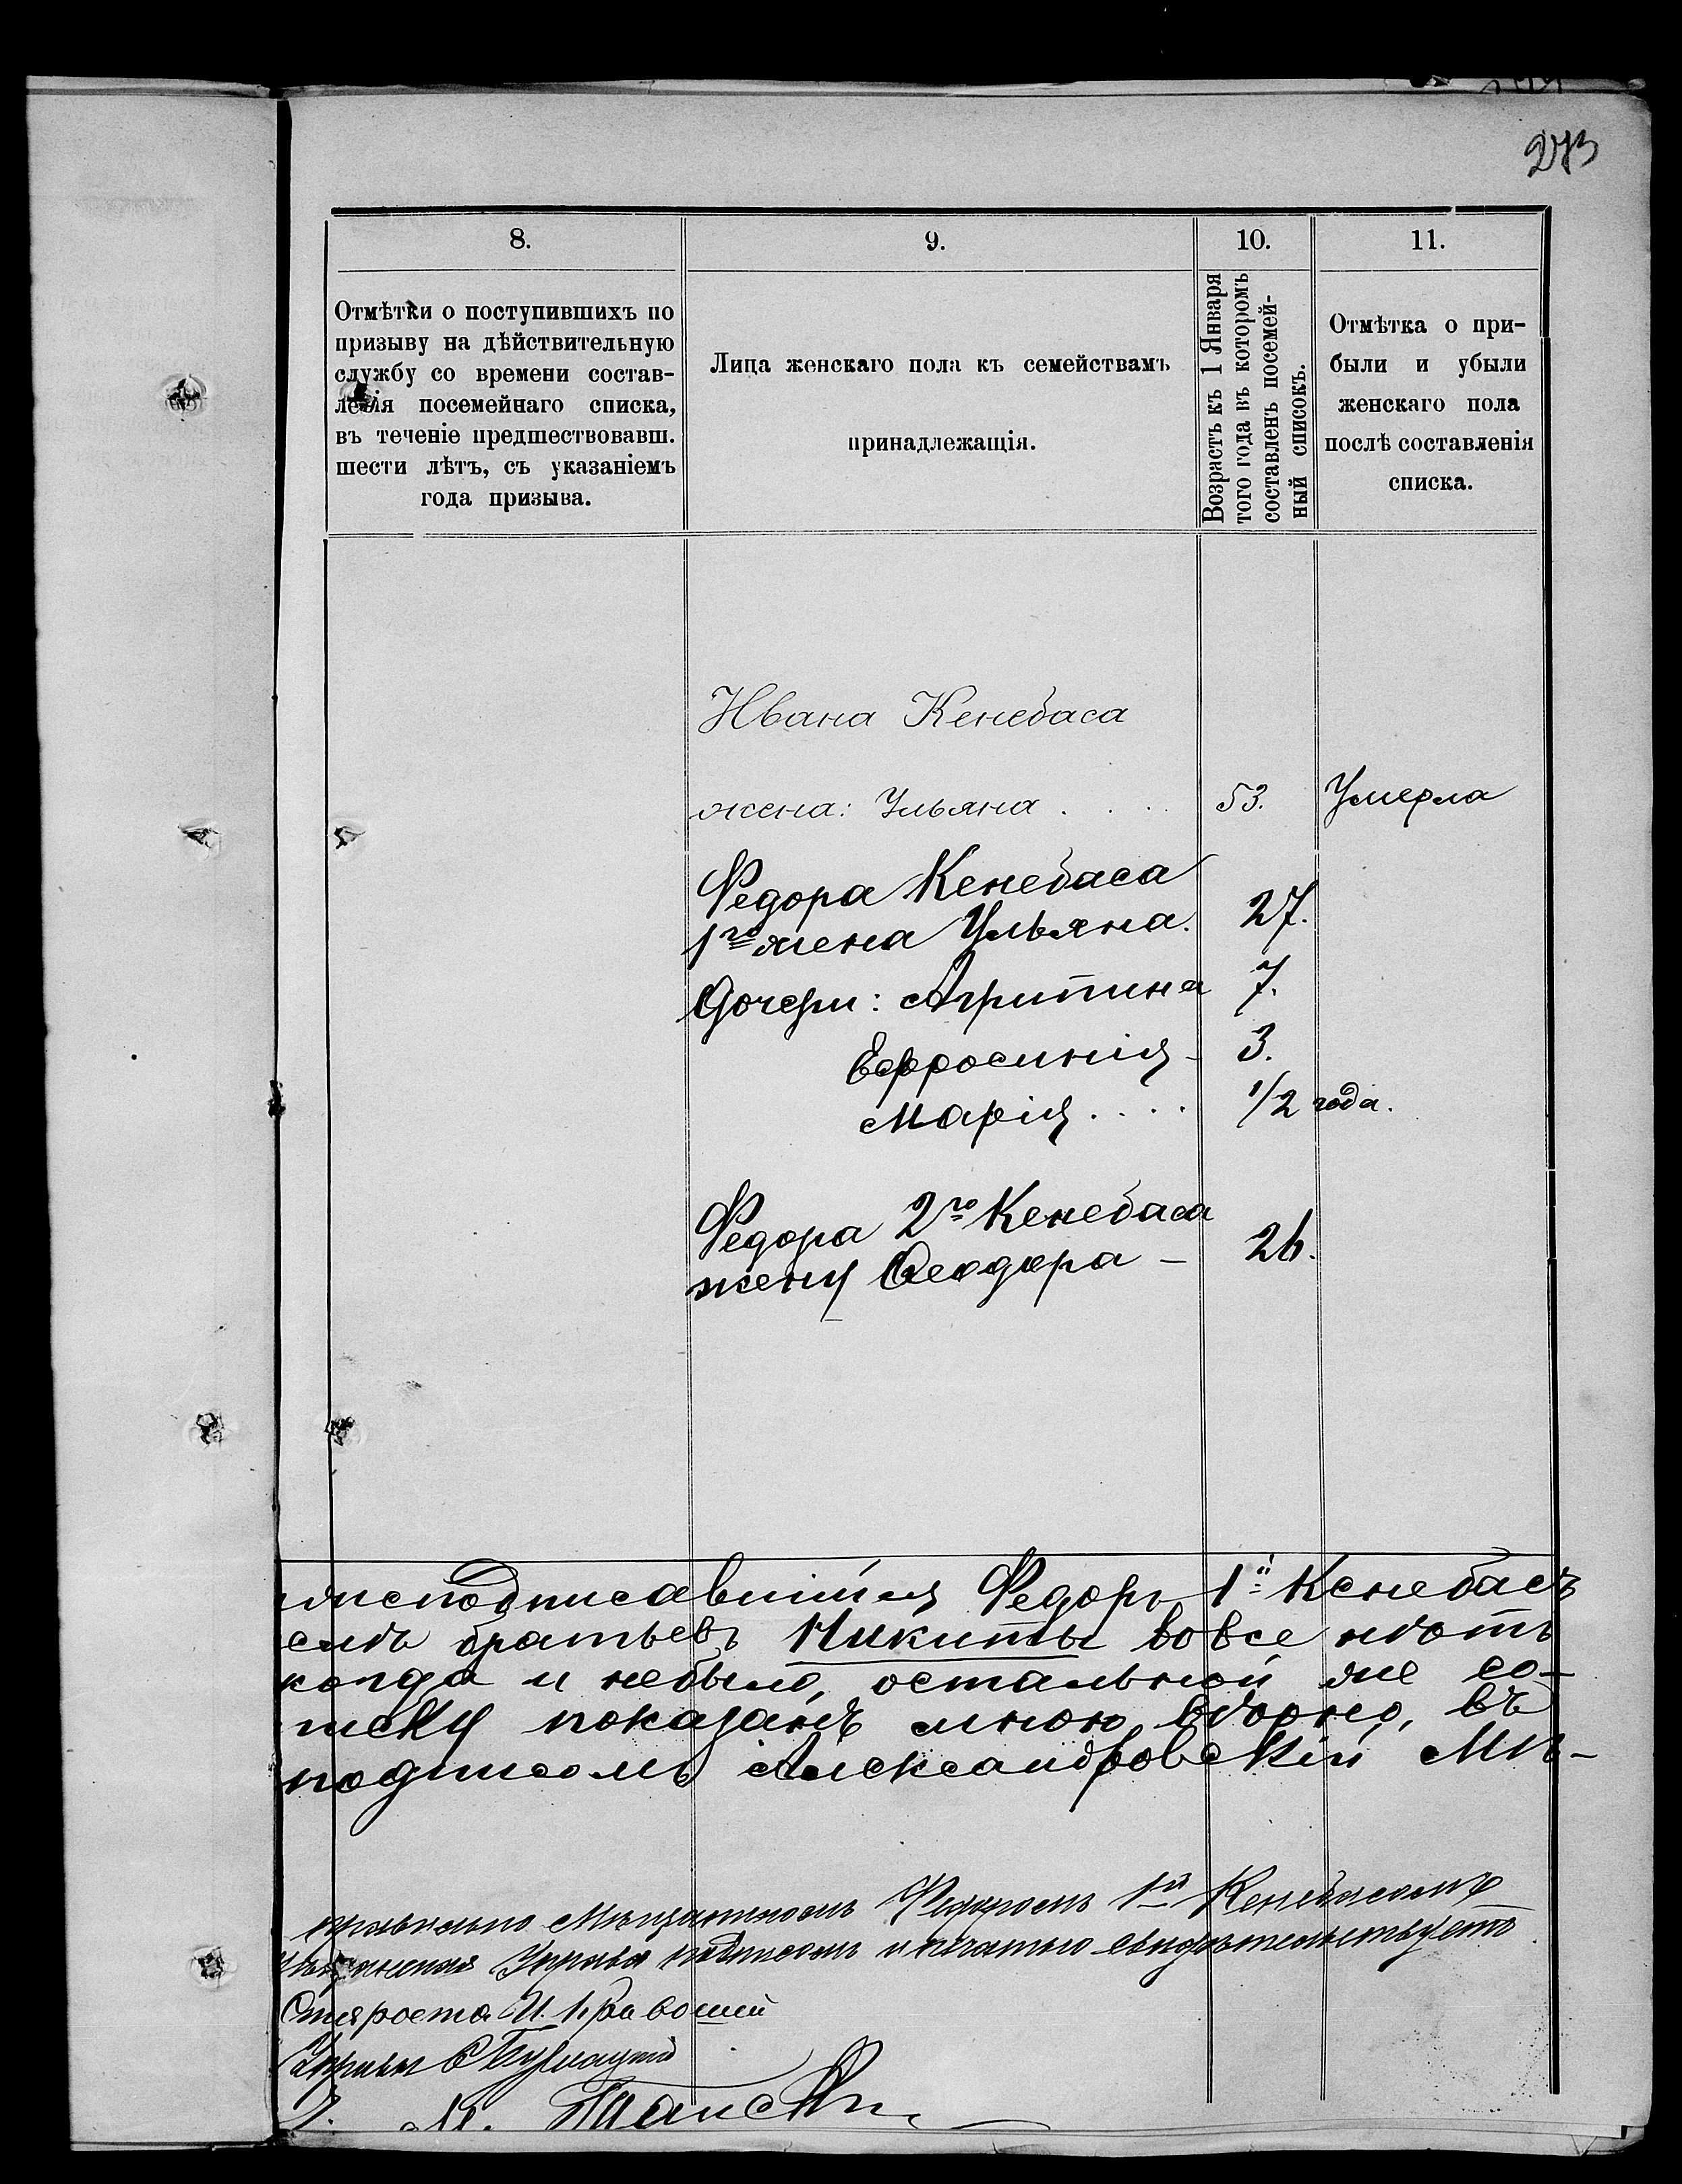 273
8.
9.
10.
11.
Отмѣтки о поступившихъ по
призыву на дѣйствительную
службу со времени состав-
ленія посемейнаго списка,
въ теченіе предшествовавш.
шести лѣтъ, съ указаніемъ
года призыва.
Лица женскаго пола къ семействамъ
принадлежащія.
Возрастъ къ 1 Января
того года въ которомъ
составленъ посемей-
ный списокъ.
Отмѣтка о при-
были и убыли
женскаго пола
послѣ составленія
списка.
Ивана Кенебаса
жена: Ульяна . . . . 53. Умерла
Федора Кенебаса
1го жена Ульяна. 27.
Дочери: Агрипина 7.
Ефросинія - 3.
Марія . . . . 1/2 года.
Федора 2го Кенебаса
жену Феодора - 26.
Федоръ 1й Кенебасъ
братьевъ Никиты вовсе нѣтъ
когда и небыло, остальной же со-
показанъ мною вѣрно, въ
подписомъ Александровскій Мѣ-
правильно Мѣщаниномъ Федоромъ 1й Кенебасомъ
Управа подписомъ и печатью свидѣтельствуетъ
Староста И.
Управы